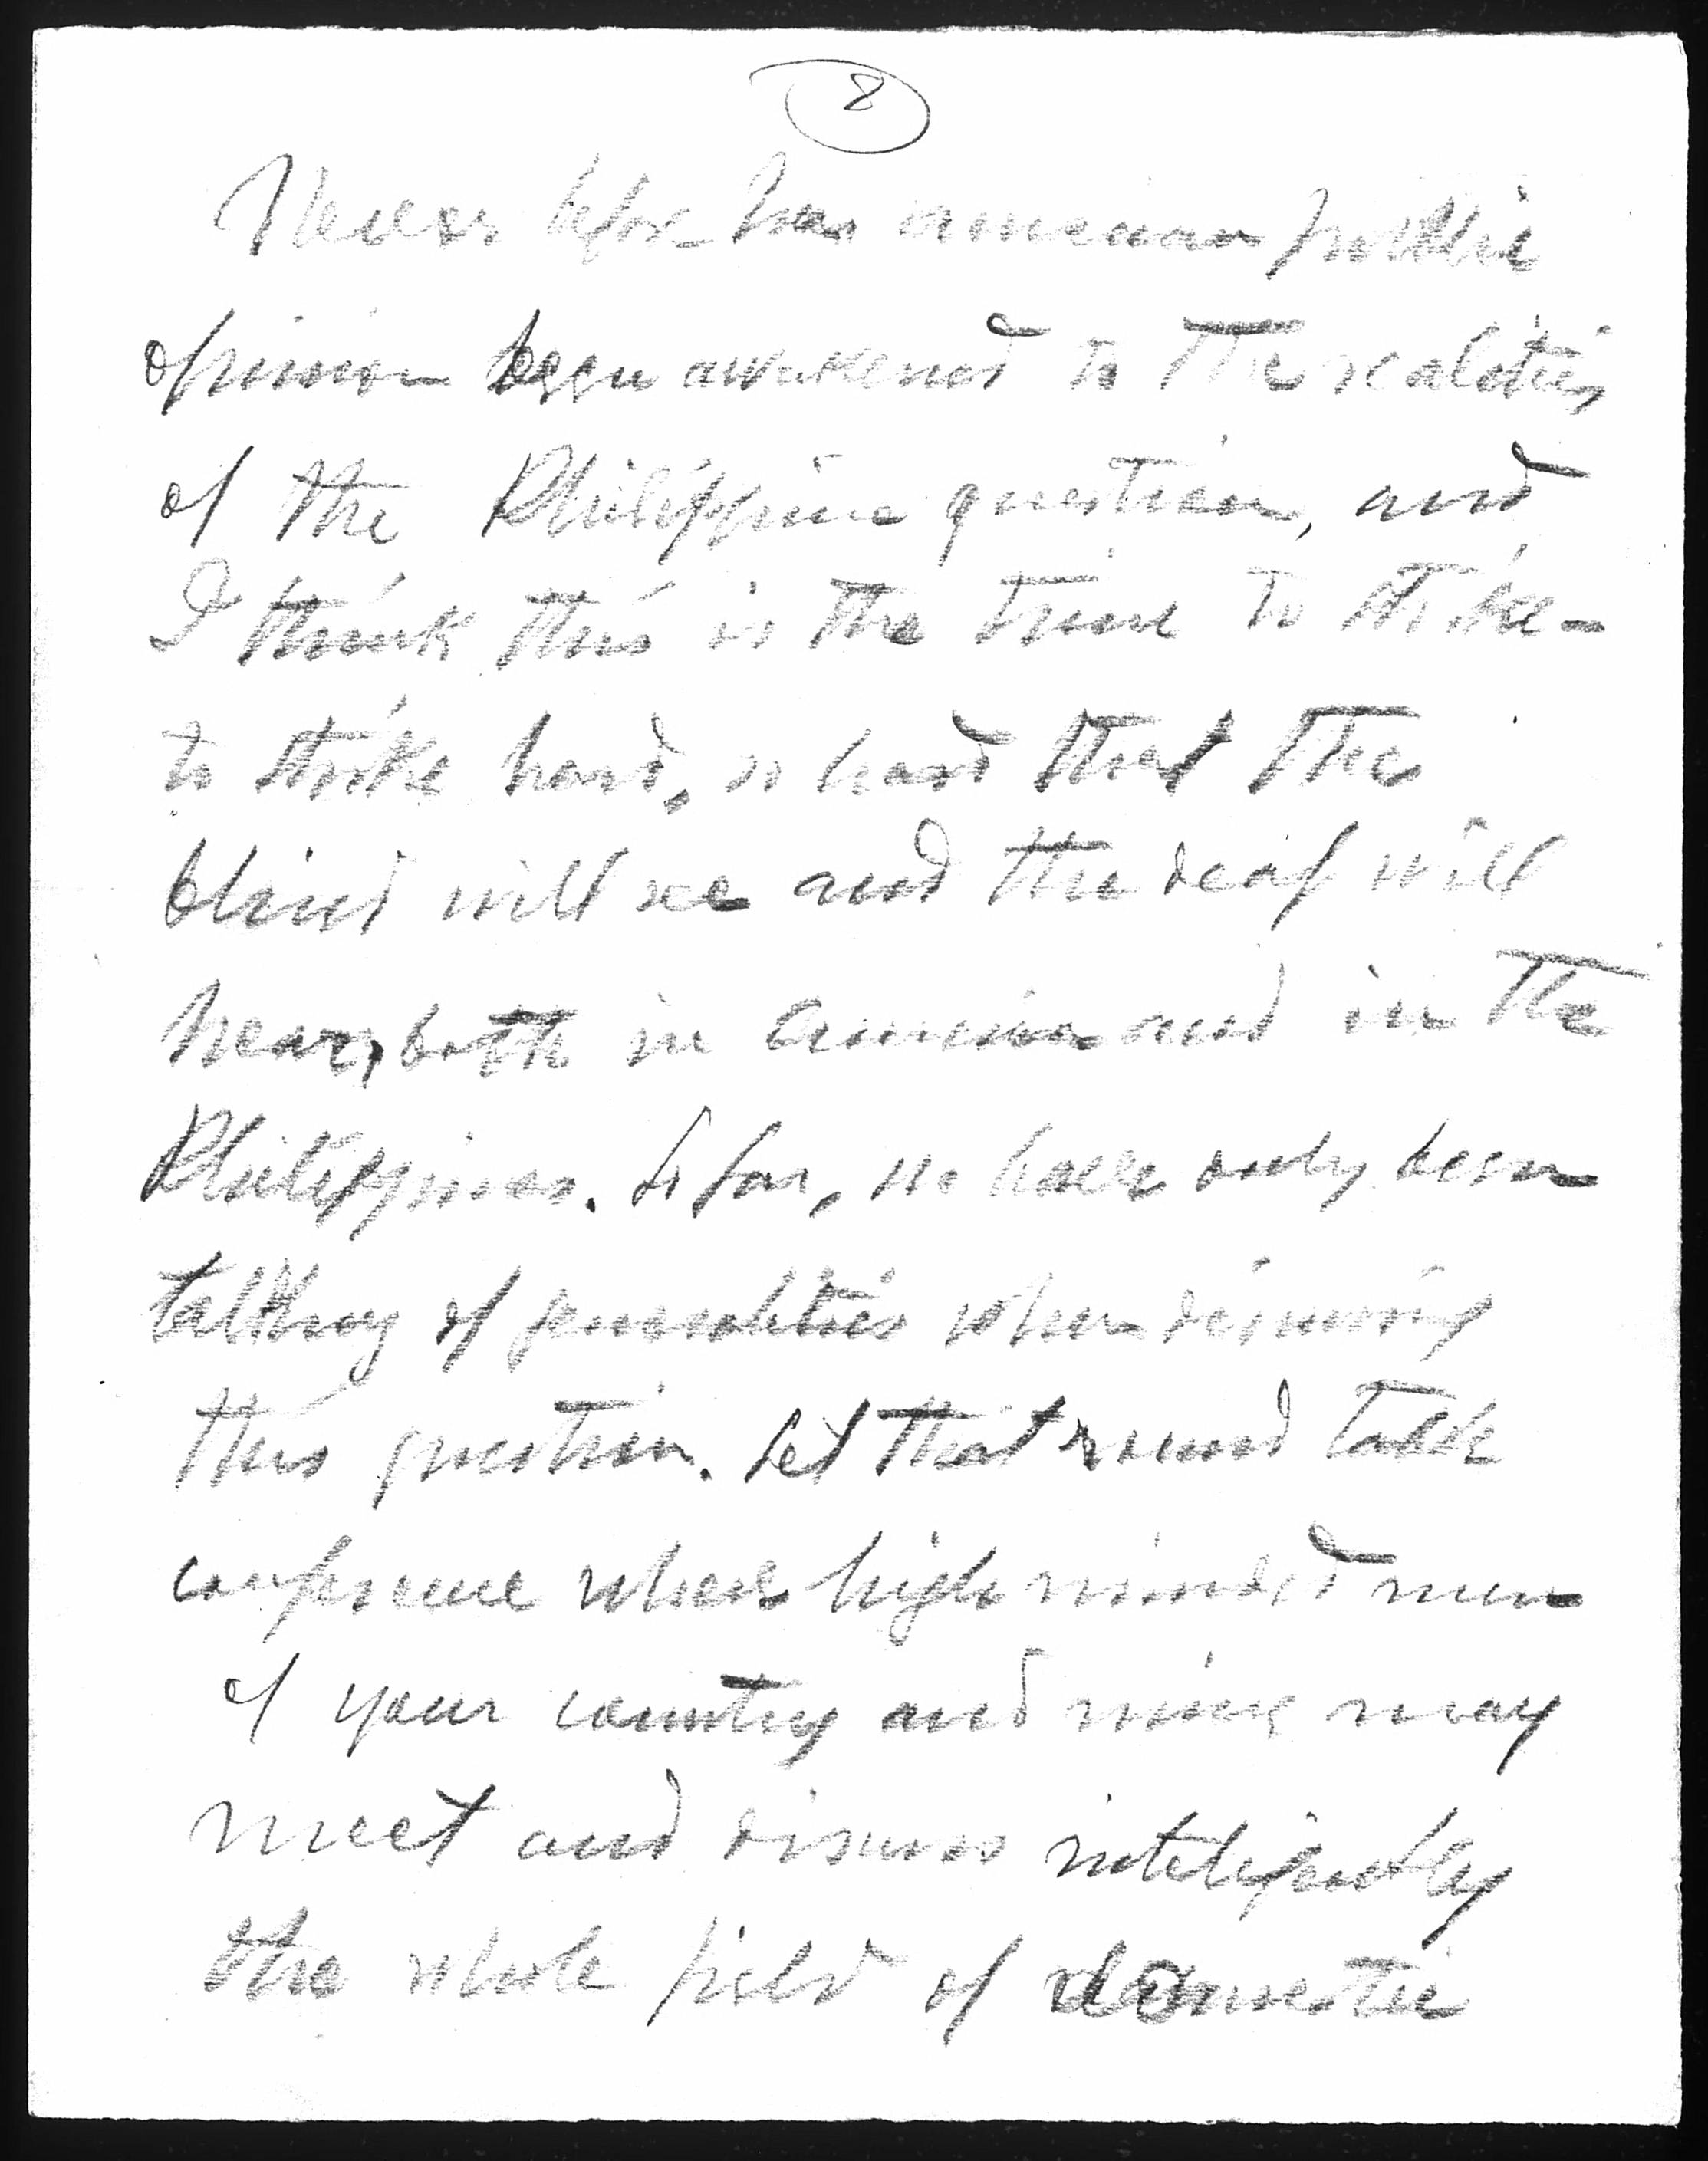 8
Never before has american public
opinion been awakened to the realities
of the Philippine question, and
I think this is the time to strike -
to strike hard, so hard that the
blind will see and the deaf will
hear, both in America and in the
Philippines. So far, we have only been
talking of generalities when discussing
this question. Let that round table
conference where high minded men
of your country and mine may
meet and discuss intelligently
the whole field of domestic